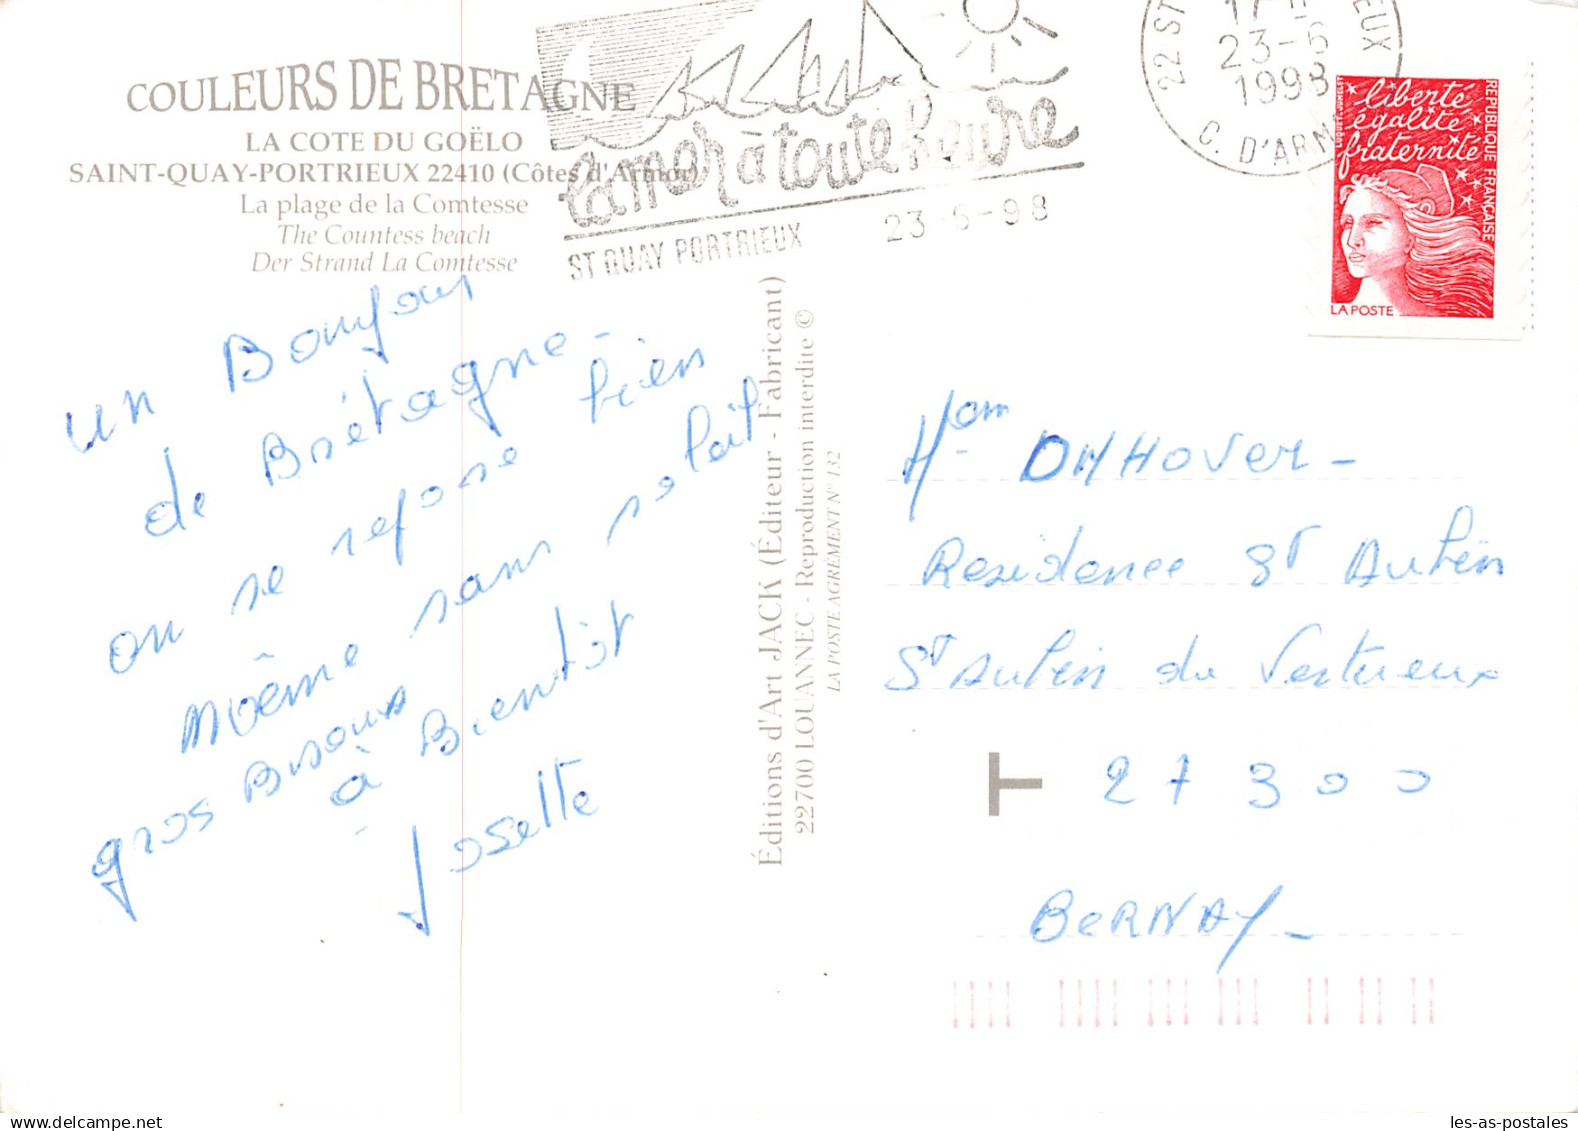 COULEURS DE BRETAGNE
LA COTE DU GOËLO
SAINT-QUAY-PORTRIEUX 22410 (Côtes d'Armor)
La plage de la Comtesse
The Countess beach
Der Strand La Comtesse
la mer à toute heure
ST QUAY PORTRIEUX 23-6-98
22 ST EUX
17
23-6
1998
C. D'ARM
liberté
égalité
fraternité
REPUBLIQUE FRANÇAISE
LA POSTE
un Bonjour
de Brétagne -
on se repose bien
même sans soleil
gros Bisous
à Bientôt
Josette
Éditions d'Art JACK (Éditeur - Fabricant)
22700 LOUANNEC - Reproduction interdite ©
LA POSTE AGRÉMENT N° 132
Residence St Aubin
St Aubin du Vertueux
T 27300
BERNAY -
les-as-postales